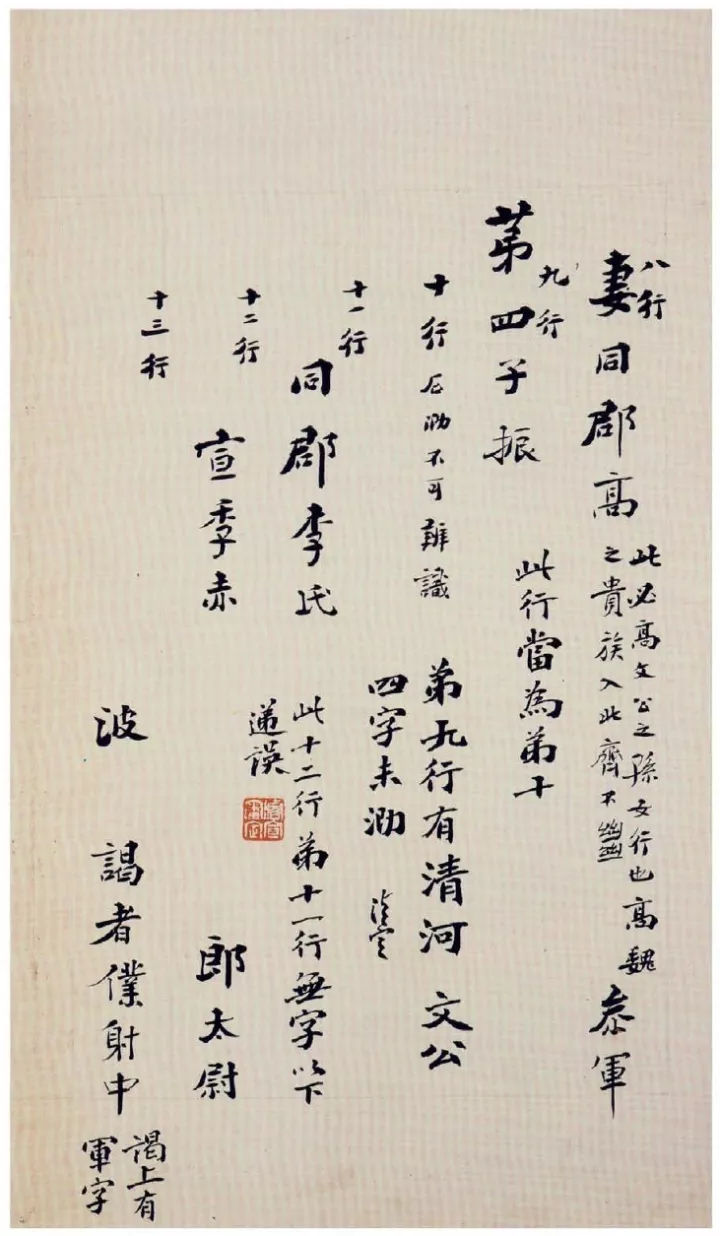 八行
妻同郡高
此必高文公之孫女行也高魏
之貴族入此齊不
叅軍
九行
苐四子振
此行當為弟十
十行
石泐不可辨識
弟九行有清河文公
四字未泐
十一行
同郡李氏
此十二行弟十一行無字以下
遞誤
十二行
宣季赤
郎太尉
十三行
波
謁者僕射中
謁上有
軍字